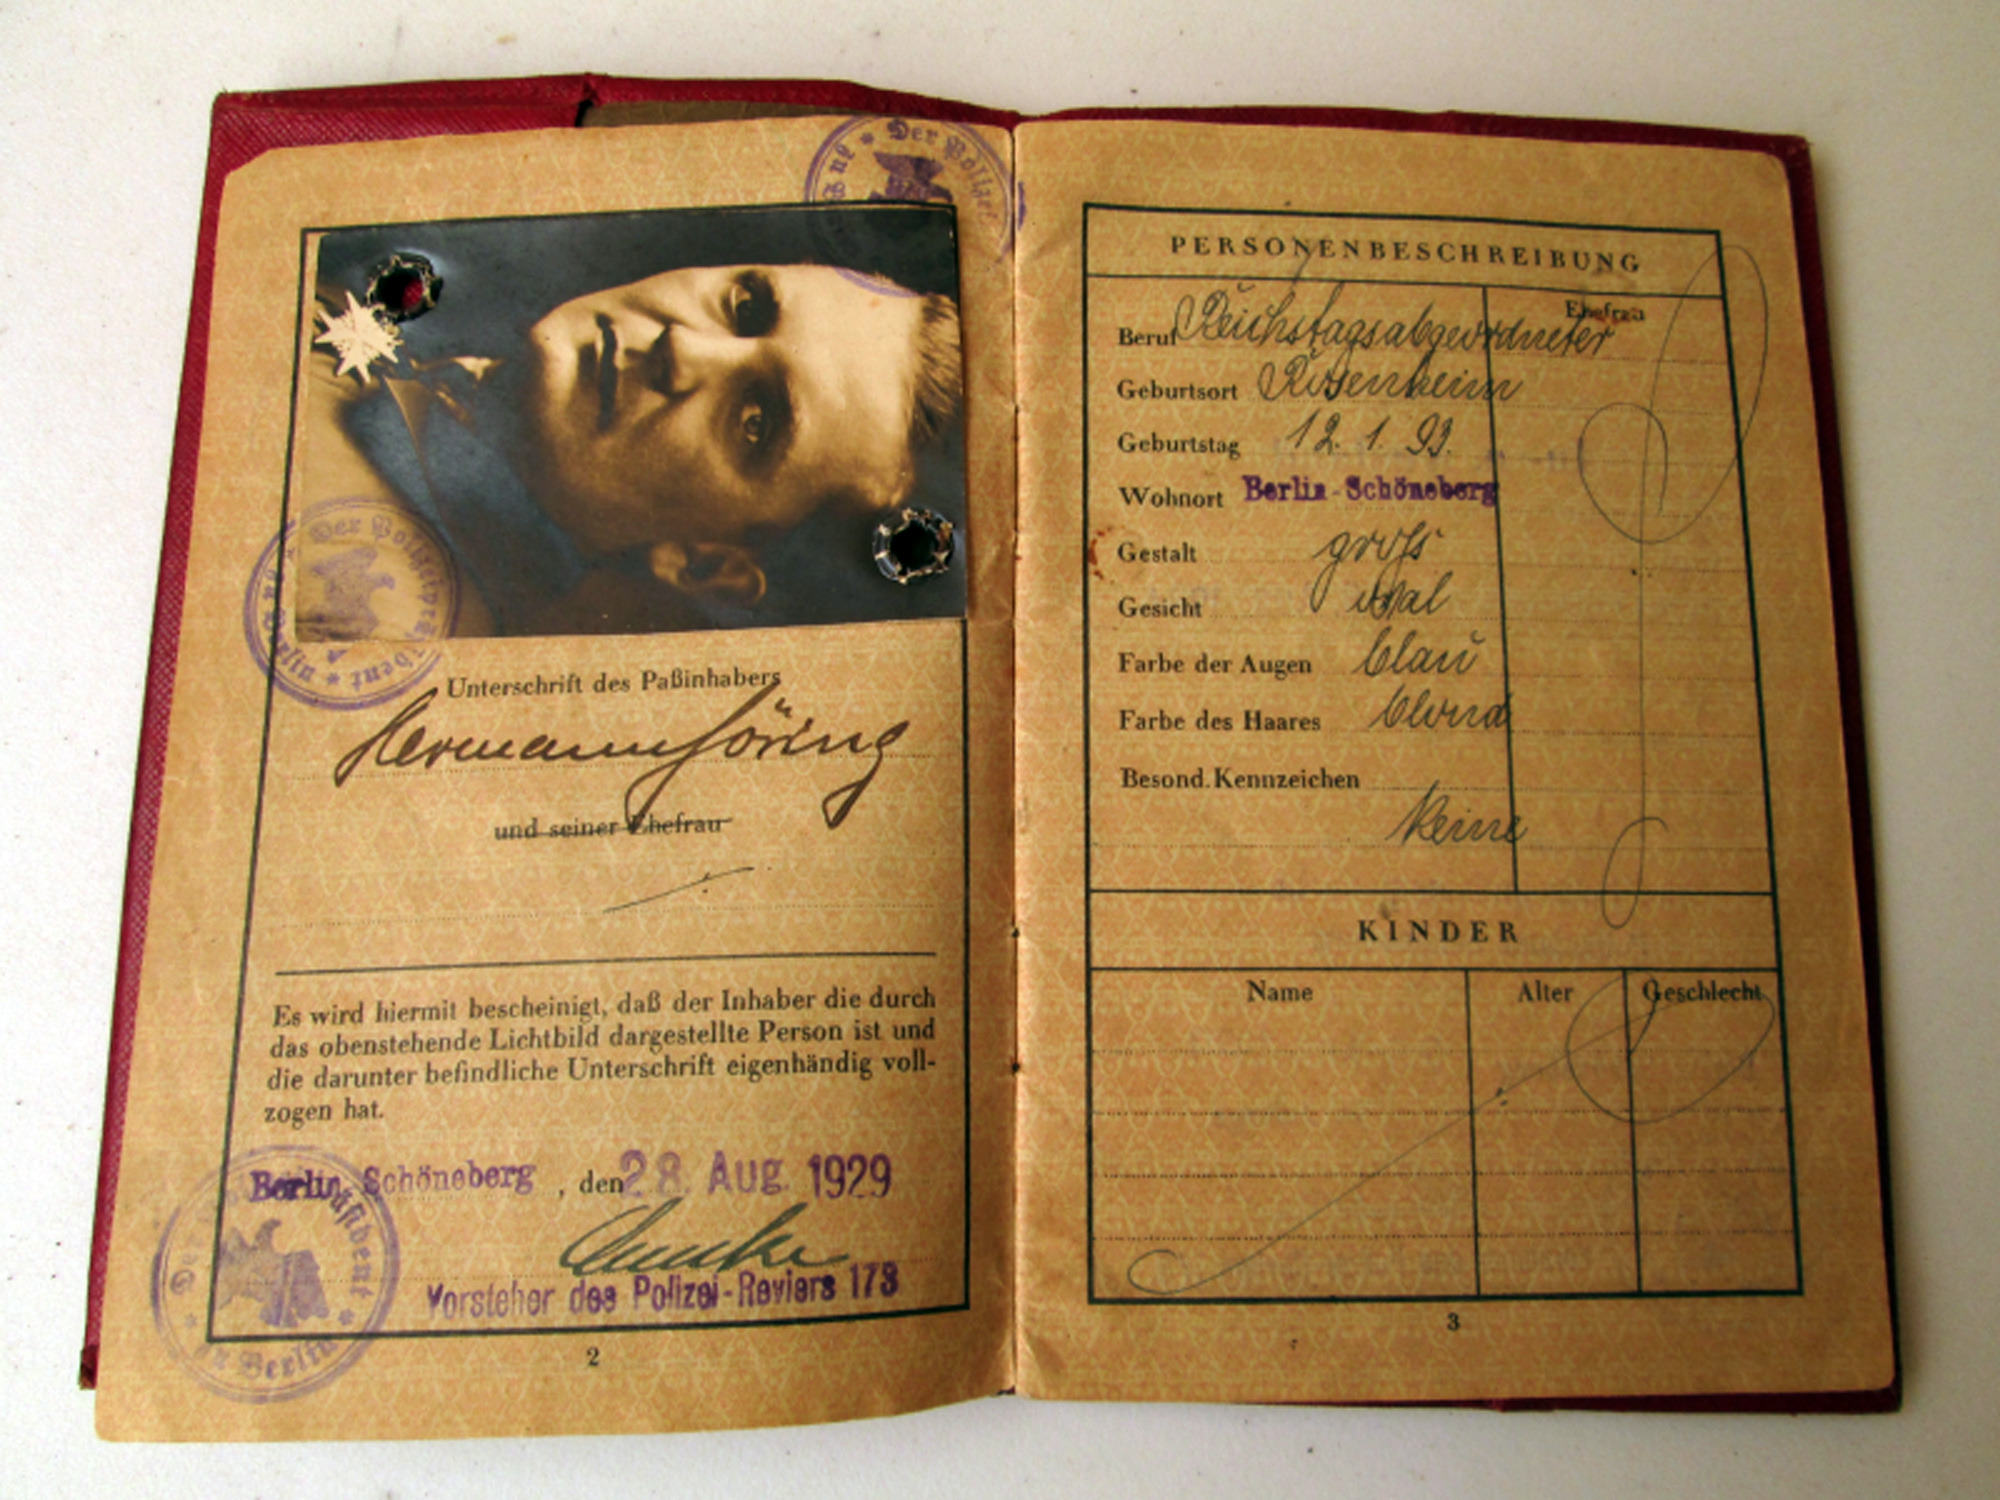 Der Polizei
Der Polizeipräsident
in Berlin
Unterschrift des Paßinhabers
Hermann Göring
und seiner Ehefrau
Es wird hiermit bescheinigt, daß der Inhaber die durch
das obenstehende Lichtbild dargestellte Person ist und
die darunter befindliche Unterschrift eigenhändig voll-
zogen hat.
Berlin-Schöneberg, den 28. Aug. 1929
Vorsteher des Polizei-Reviers 173
in Berlin
2
PERSONENBESCHREIBUNG
Ehefrau
Beruf Reichstagsabgeordneter
Geburtsort Rosenheim
Geburtstag 12. 1. 93.
Wohnort Berlin-Schöneberg
Gestalt groß
Gesicht oval
Farbe der Augen blau
Farbe des Haares blond
Besond. Kennzeichen
keine
KINDER
Name Alter Geschlecht
3